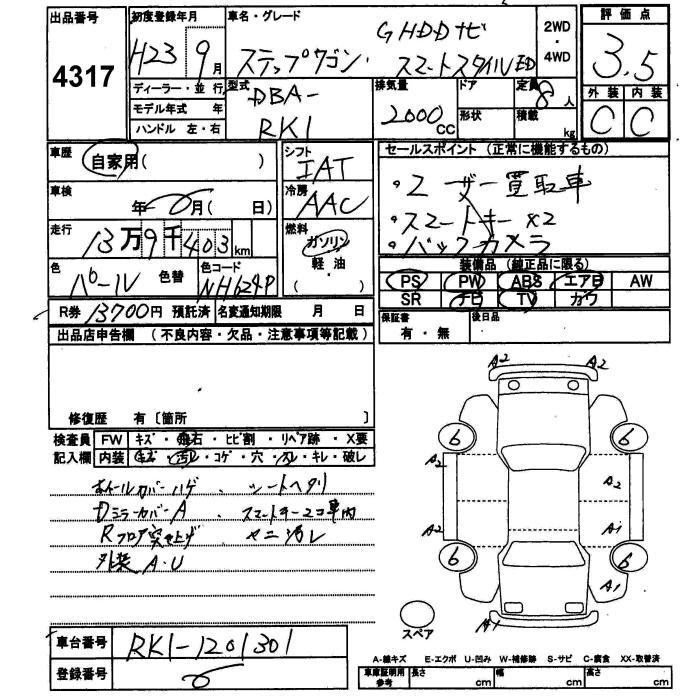 出品番号
4317
初度登録年月
H23 9月
ディーラー・並行
モデル年式 年
ハンドル 左・右
車名・グレード
GHDDナビ
ステップワゴン・スマートスタイルED
2WD
・
4WD
評価点
3.5
外装 内装
C C
型式
DBA-
RK1
排気量
2000
CC
ドア
形状
定員
8人
積載
kg
車歴
自家用( )
車検
年 月( 日)
走行
13万9千403km
色
パール 色替
色コード
NH624P
シフト
IAT
冷房
AAC
燃料
ガソリン
軽油
( ・ )
セールスポイント (正常に機能するもの)
・ユーザー買取車
・スマートキー×2
・バックカメラ
装備品 (純正品に限る)
PS PW ABS エアB AW
SR ナビ TV カワ
保証書
有・無
後日品
R券 13700円 預託済
名変通知期限 月 日
出品店申告欄 (不良内容・欠品・注意事項等記載)
修復歴 有〔箇所 〕
検査員 FW キズ・飛石・ヒビ割・リペア跡・X要
記入欄 内装 キズ・汚レ・コゲ・穴・スレ・キレ・破レ
ホイールカバーハゲ ・シートヘタリ
DミラーカバーA ・スマートキー2コ車内
Rフロア突き上げ
外装A・U
A2 A2
6 6
A2 A2
A2 A1
6 6
A1
A1
スペア
車台番号 RK1-1201301
登録番号
A-線キズ E-エクボ U-凹み W-補修跡 S-サビ C-腐食 XX-取替済
車庫証明用
参考
長さ cm 幅 cm 高さ cm